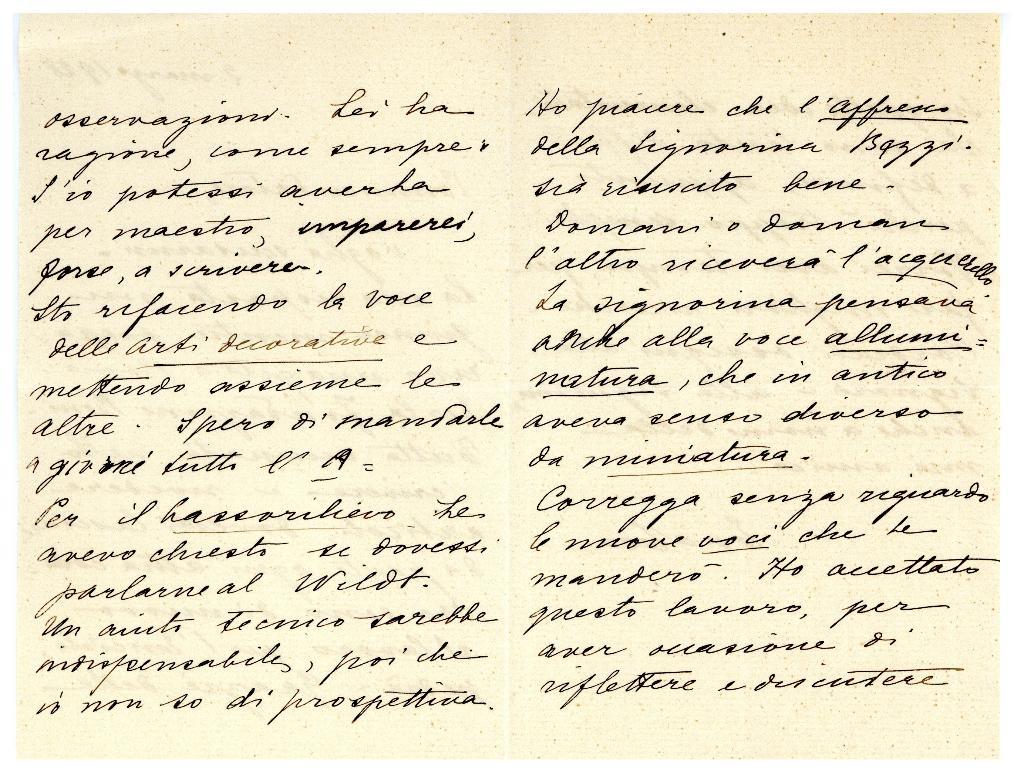 osservazioni. Lei ha
ragione, come sempre.
S'io potessi averla
per maestro, imparerei,
forse, a scrivere.
Sto rifacendo la voce
delle arti decorative e
mettendo assieme le
altre. Spero di mandarle
a giorni tutto l'A=
Per il bassorilievo Le
avevo chiesto se dovessi
parlarne al Wildt.
Un aiuto tecnico sarebbe
indispensabile, poi che
io non so di prospettiva.
Ho piacere che l'affresco
della Signorina Bezzi.
sia riuscito bene.
Domani o doman
l'altro riceverà l'acquerello
La signorina pensava
anche alla voce allumi=
natura, che in antico
aveva senso diverso
da miniatura.
Corregga senza riguardo
le nuove voci che le
manderò. Ho accettato
questo lavoro, per
aver occasione di
riflettere e discutere